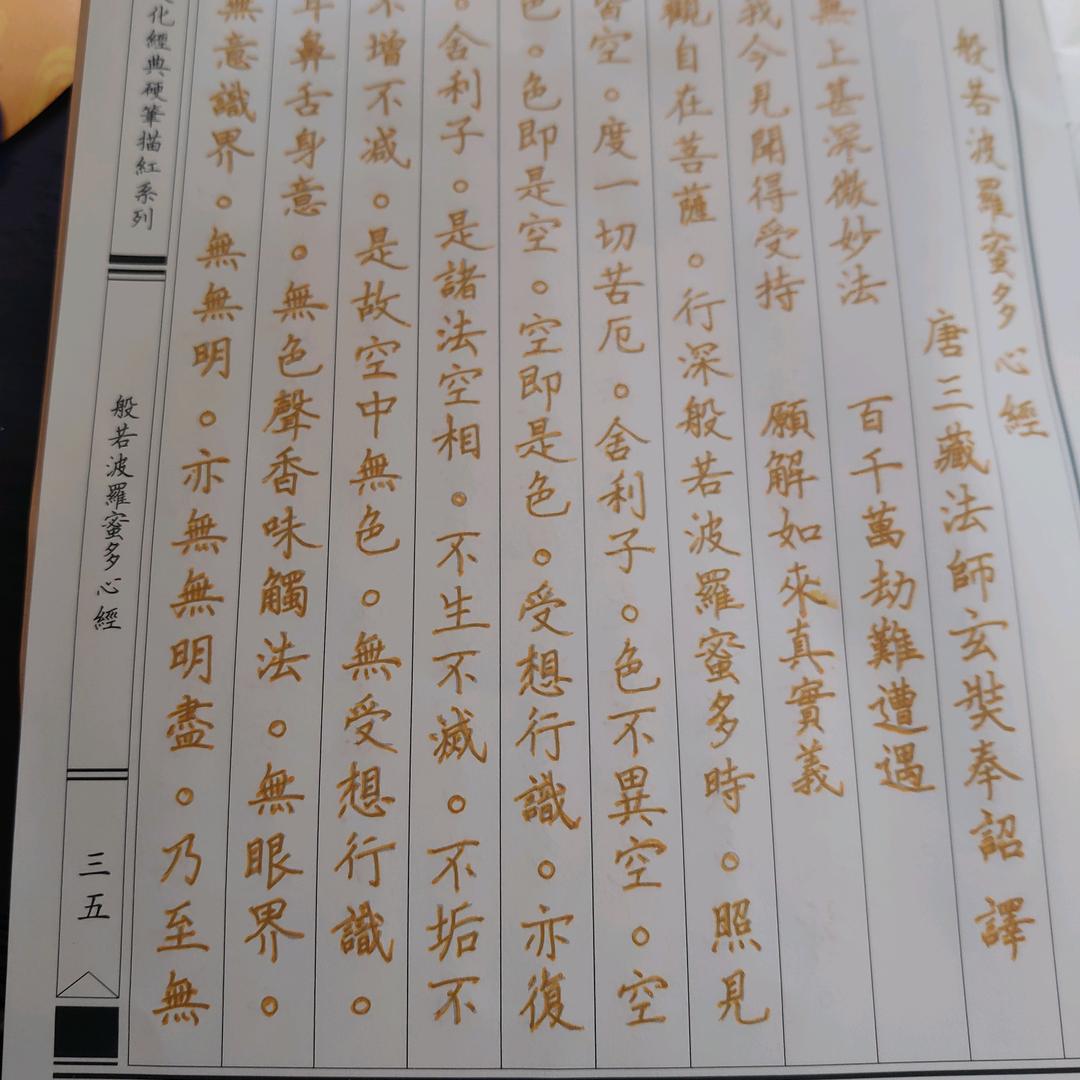 般若波羅蜜多心經
唐三藏法師玄奘奉詔譯
無上甚深微妙法 百千萬劫難遭遇
我今見聞得受持 願解如來真實義
觀自在菩薩。行深般若波羅蜜多時。照見
皆空。度一切苦厄。舍利子。色不異空。空
色。色即是空。空即是色。受想行識。亦復
。舍利子。是諸法空相。不生不滅。不垢不
不增不減。是故空中無色。無受想行識。
耳鼻舌身意。無色聲香味觸法。無眼界。
無意識界。無無明。亦無無明盡。乃至無
化經典硬筆描紅系列
般若波羅蜜多心經
三五